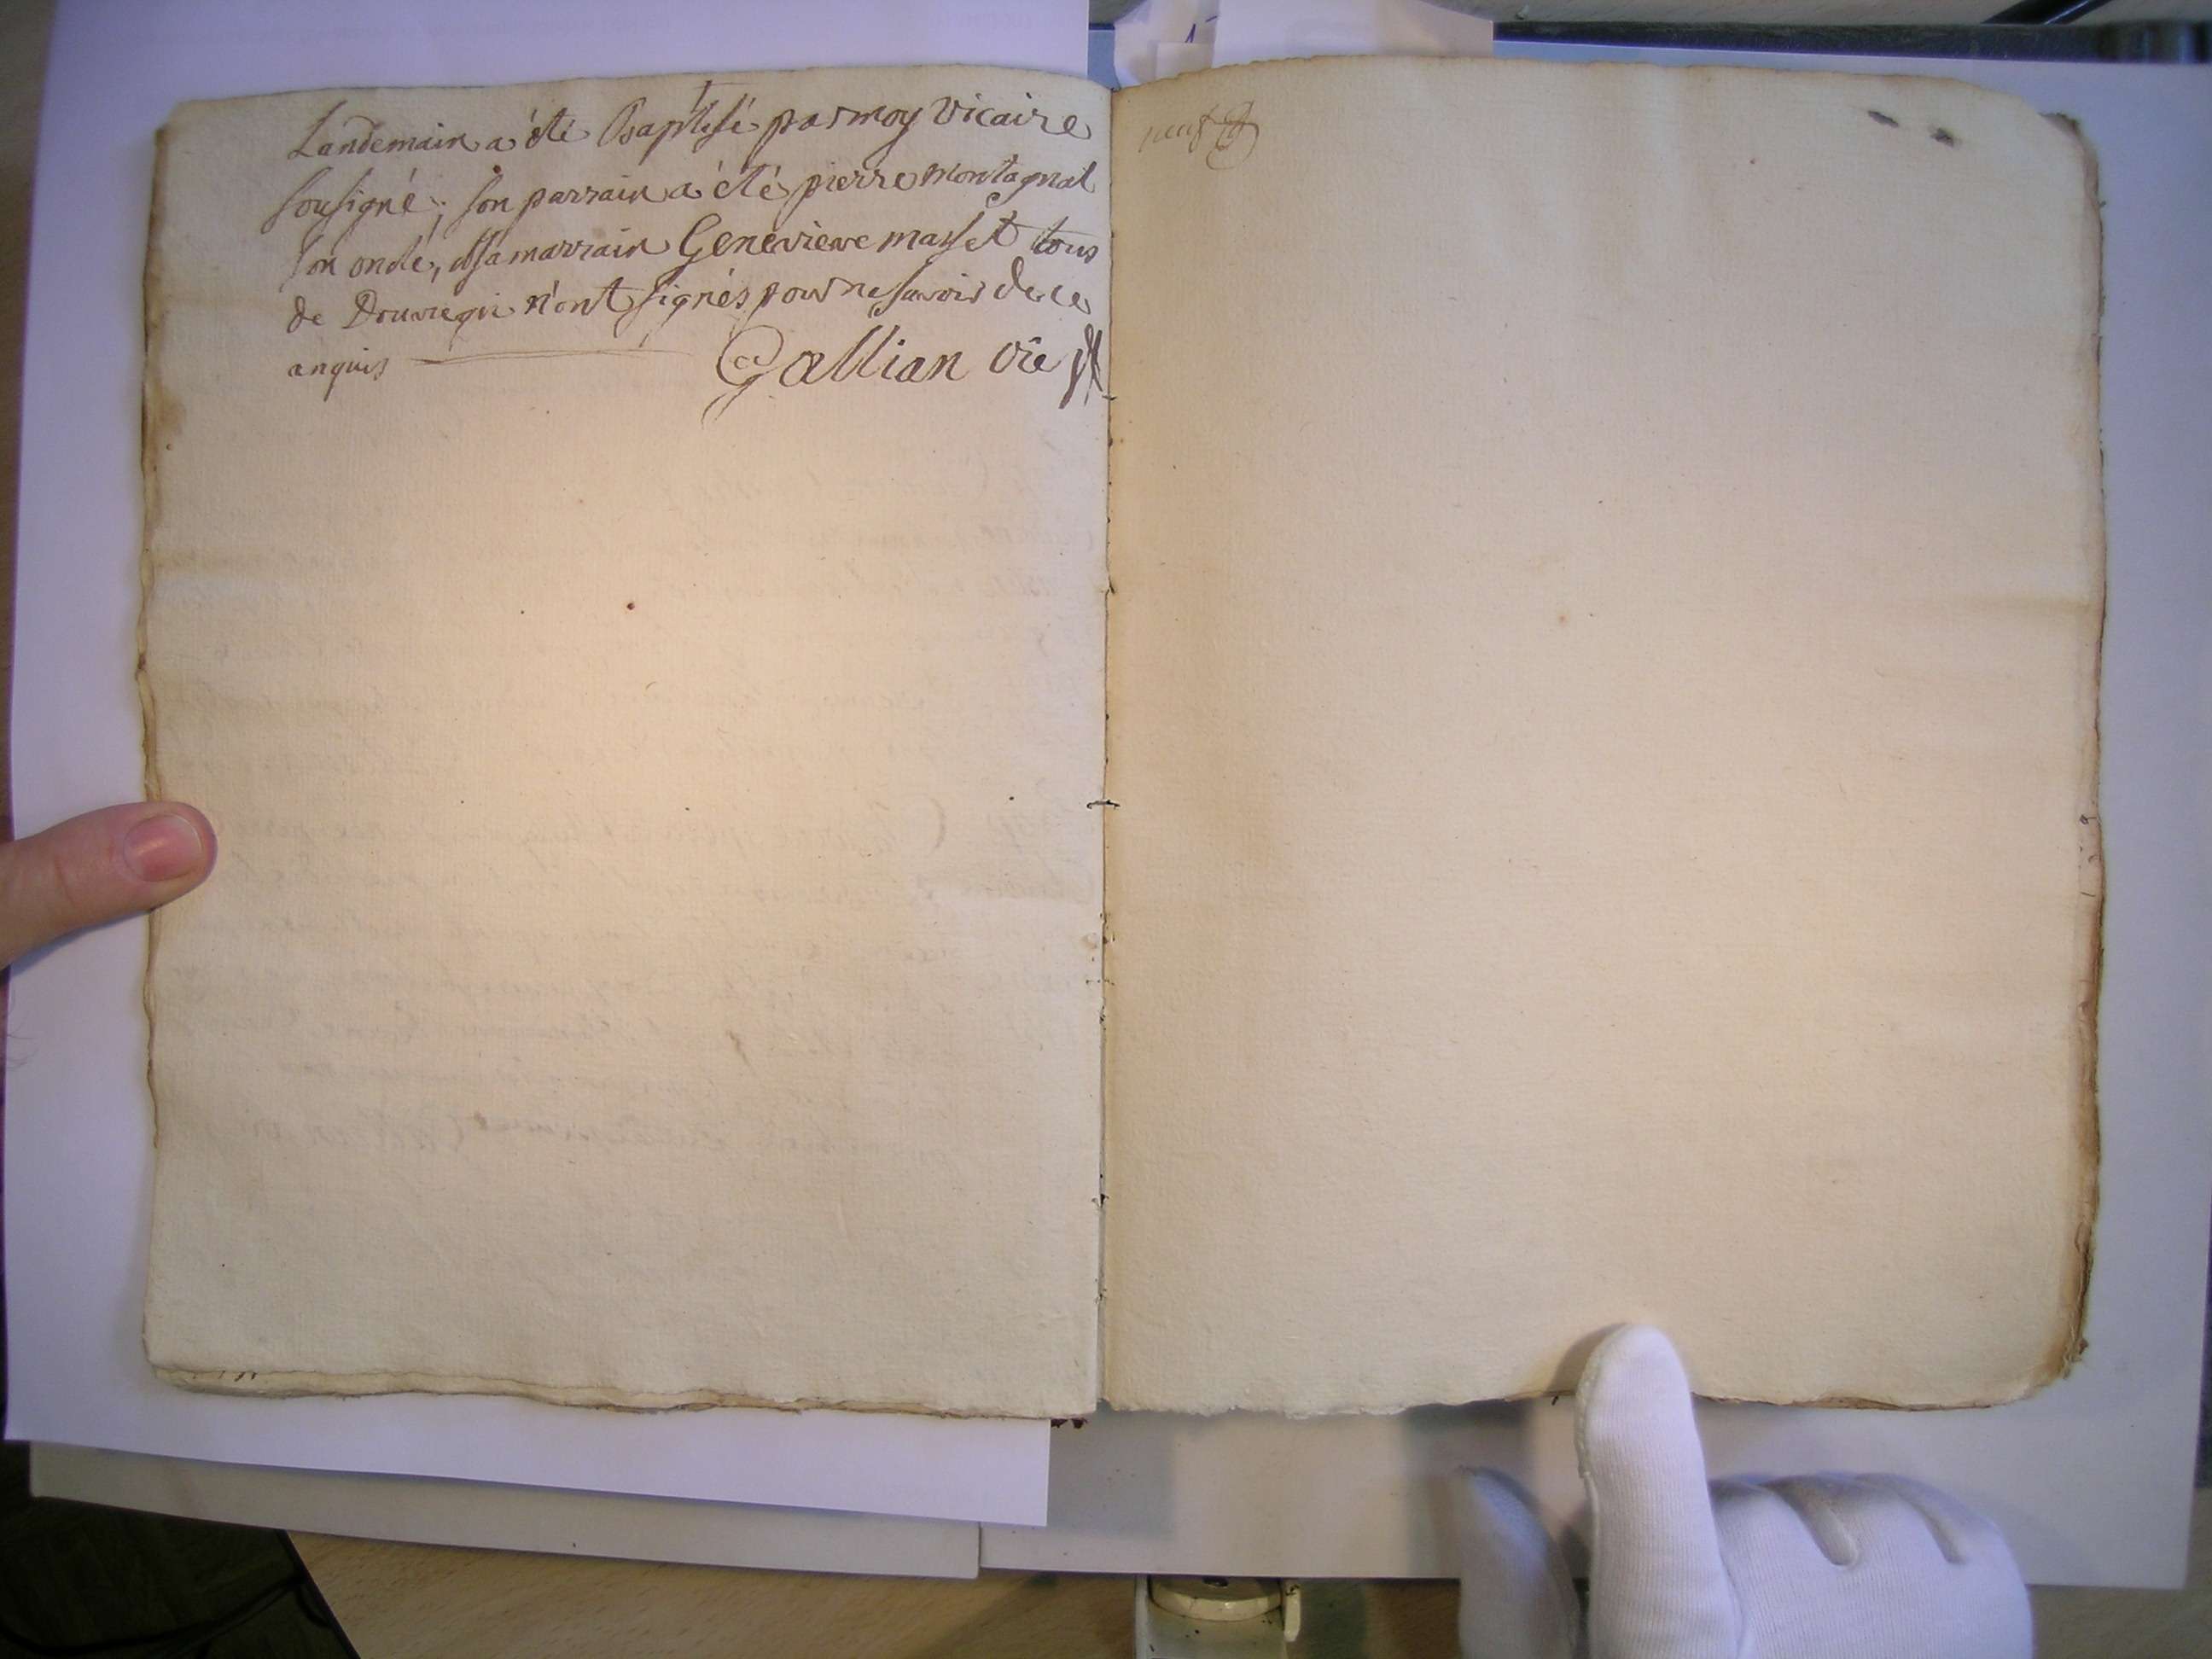 Landemain a été Baptisé par moy vicaire
sousigné; son parrain a été pierre montagnat
son oncle, et sa marrain Genevieve masset tous
de Douvre qui n'ont signés pour ne savoir de ce
anquis Gallian vie